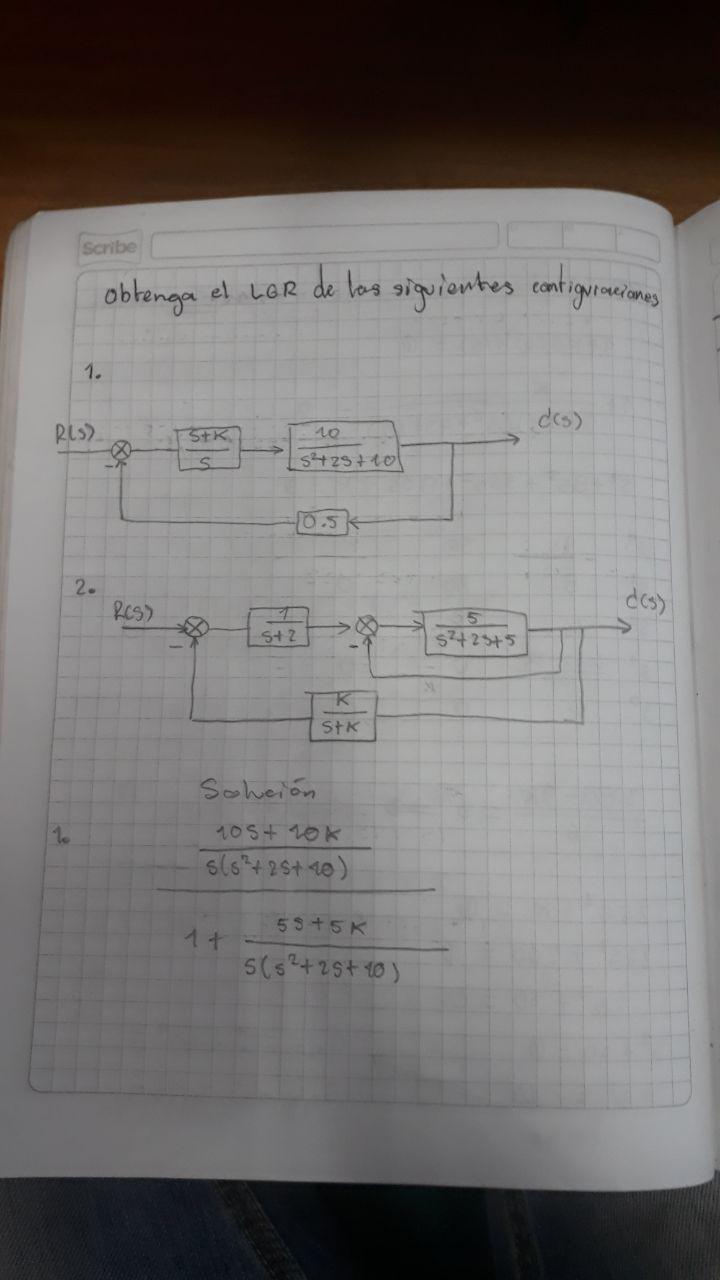 Scribe
Obtenga el LGR de las siguientes configuraciones
1.
R(s)
C(s)
S+K
S
10
S²+2S+10
-
0.5
2.
R(s)
C(s)
1
S+2
5
S²+2S+5
-
-
K
S+K
Solución
1.
10S + 10K
S(S²+2S+10)
1 +
5S+5K
S(S²+2S+10)